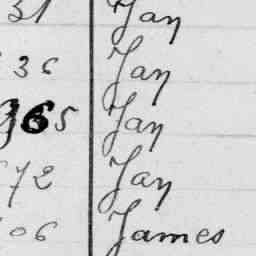 31 Jay
36 Jay
365 Jay
72 Jay
06 James